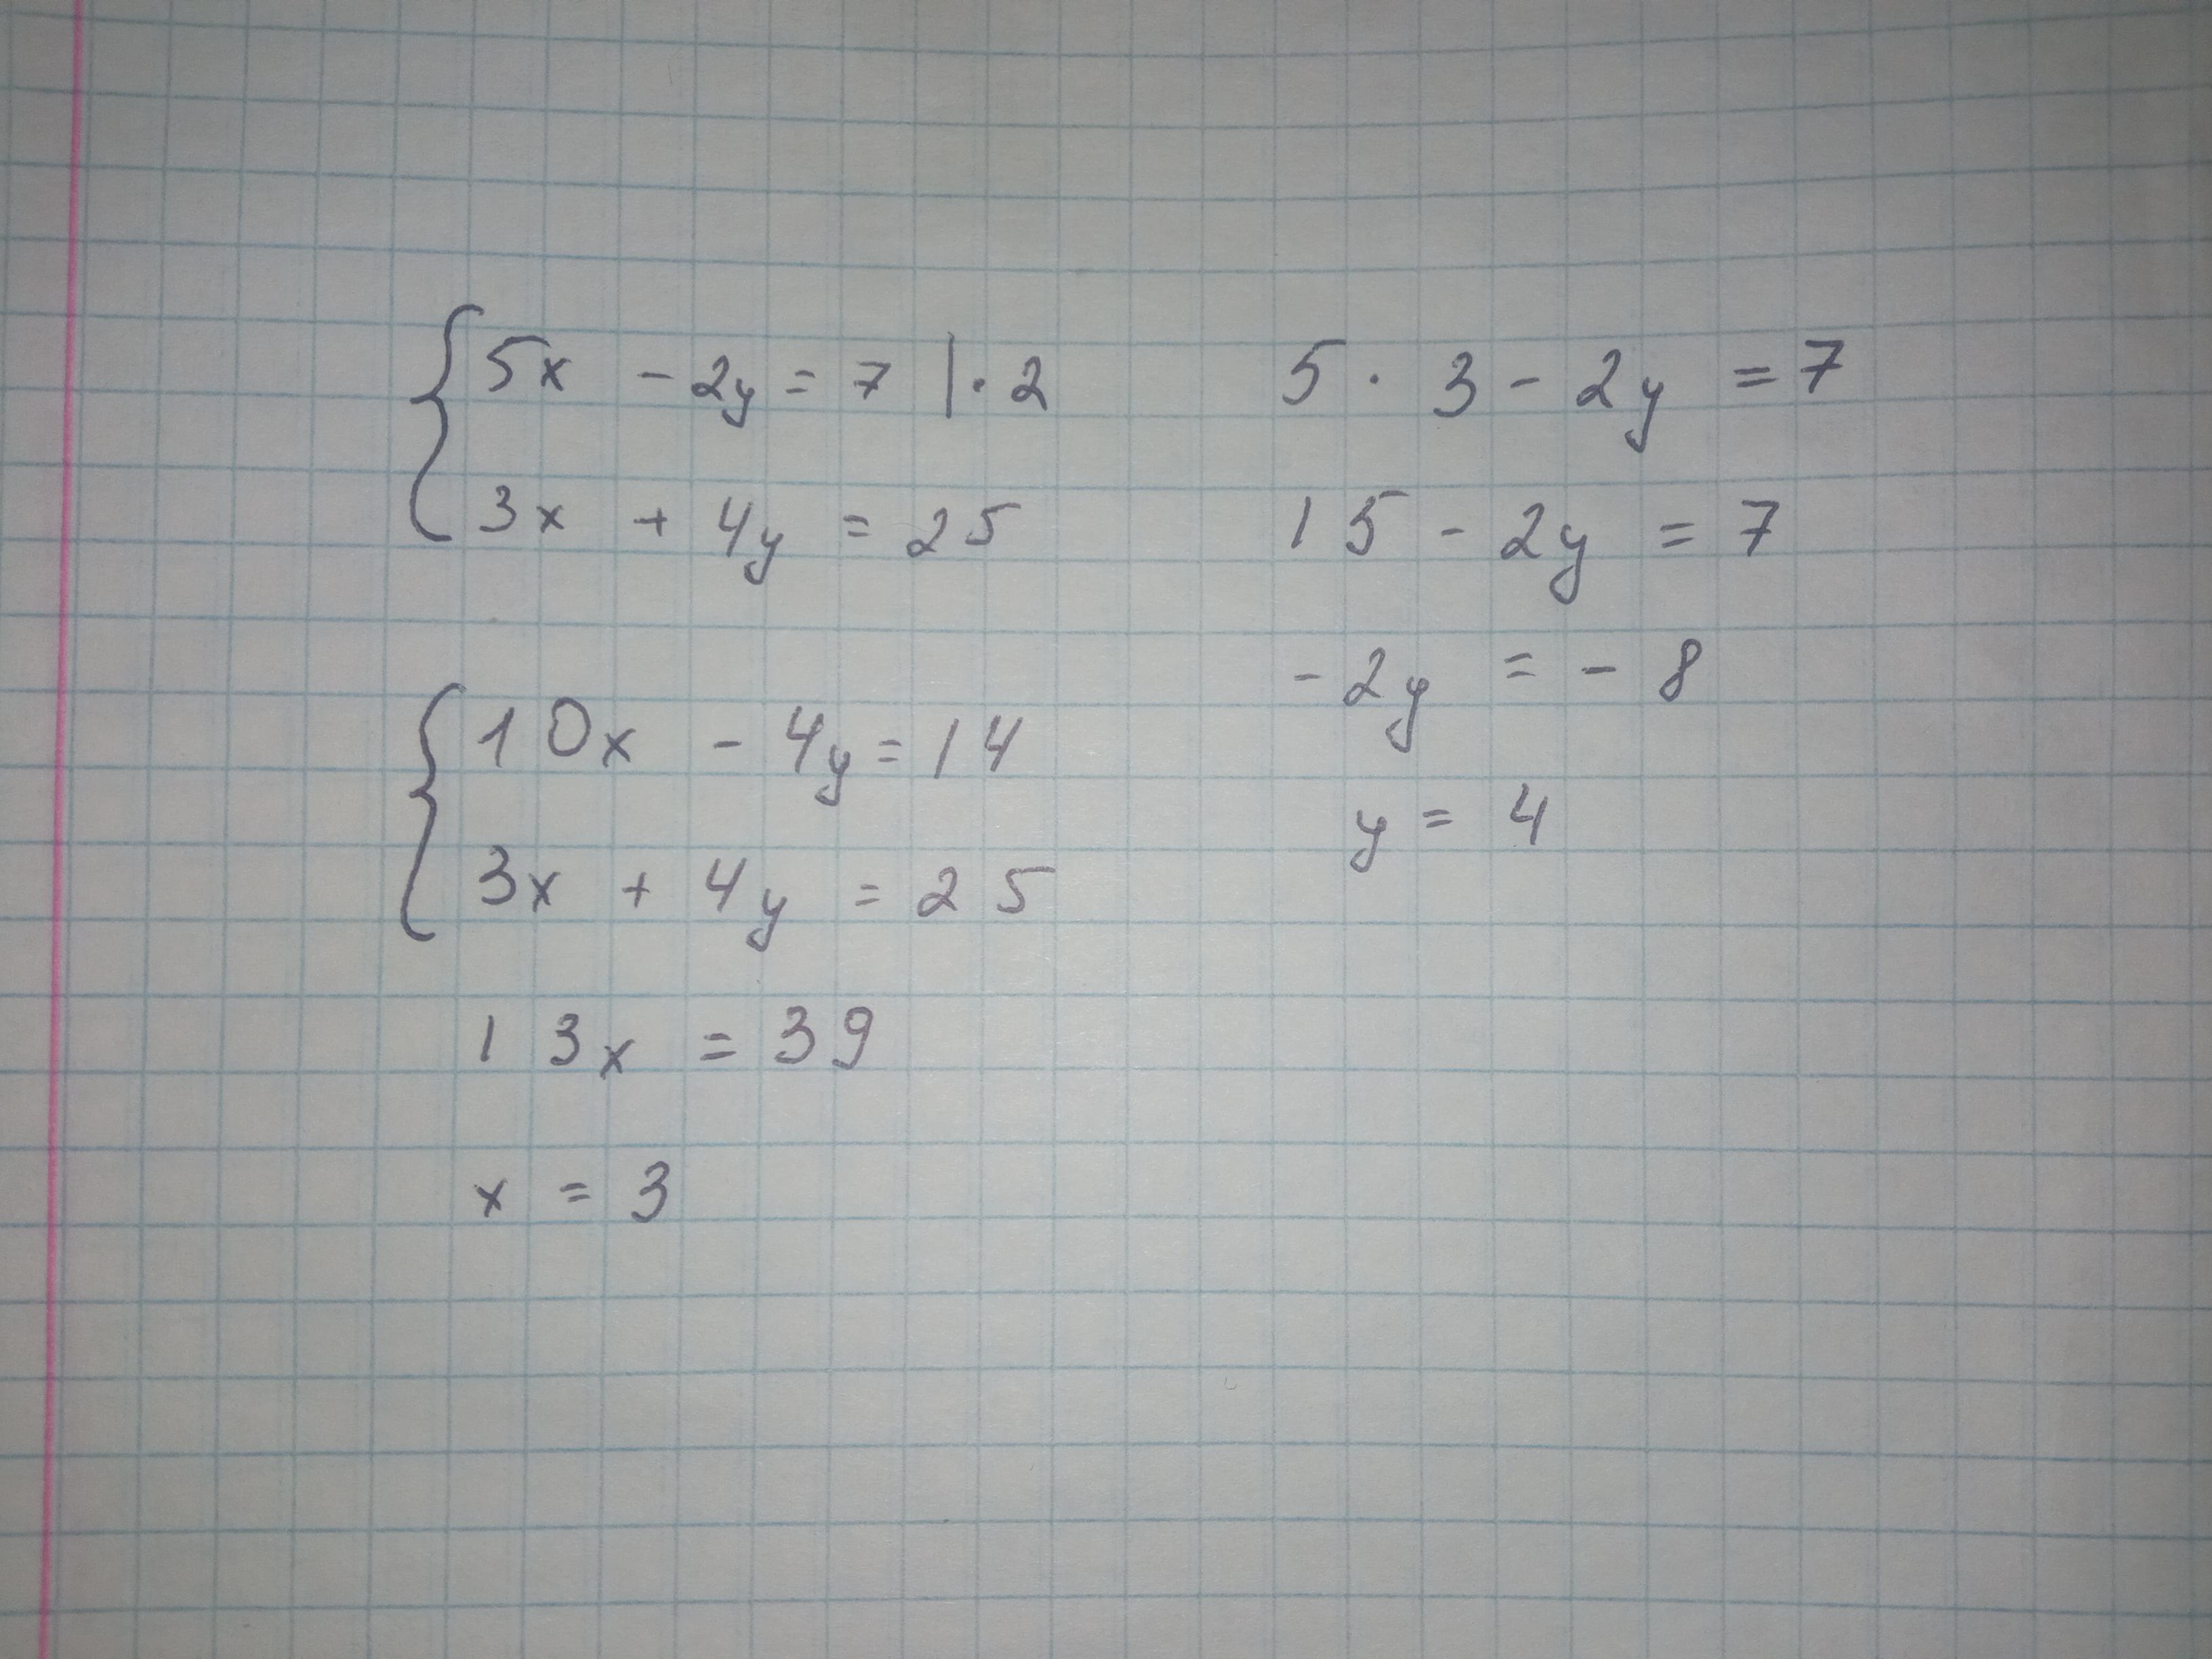 5x - 2y = 7 | · 2
3x + 4y = 25
10x - 4y = 14
3x + 4y = 25
13x = 39
x = 3
5 · 3 - 2y = 7
15 - 2y = 7
-2y = -8
y = 4